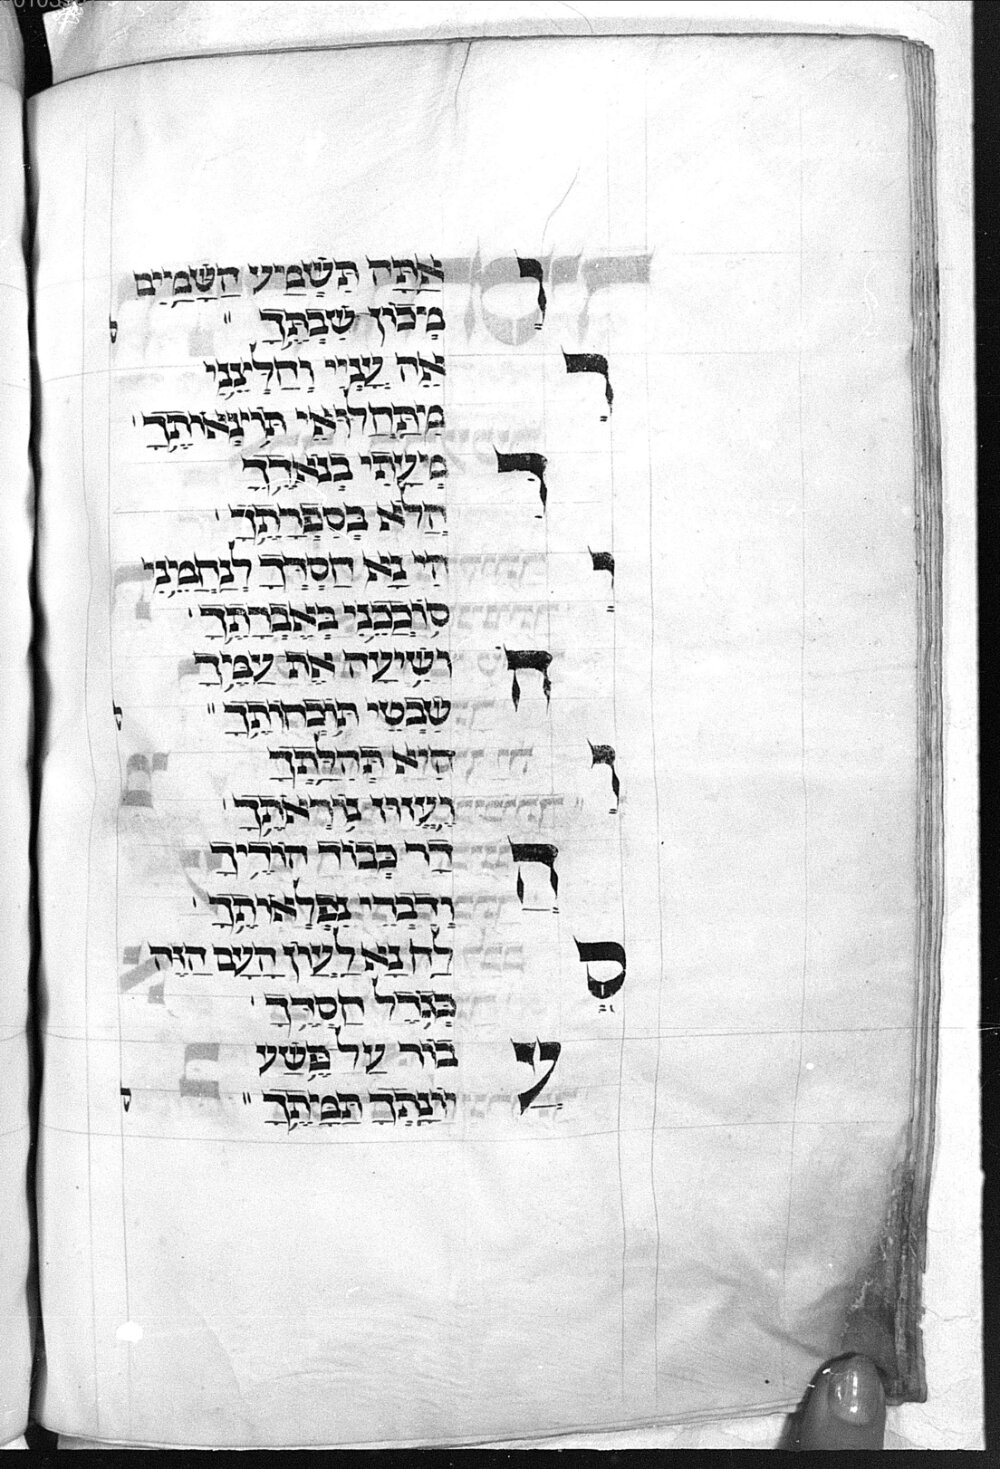 וְאַתָּה תִּשְׁמַיע הַשָּׁמַיִם
מְכוֹן שִׁבְתֶּךָ
רְאֵה עָנְיִי וְחַלְּצֵנִי
מִתַּחֲלוּאַי
דִמְעָתִי בְנֹאדֶךָ
הֲלֹא בְּסִפְרָתֶךָ
יְהִי נָא חַסְדֶּךָ לְנַחֲמֵנִי
סוֹכְכֵנִי בְּאֶבְרָתֶךָ
הוֹשִׁיעָה אֶת עַמֶּיךָ
שִׁבְטֵי תּוֹכְחוֹתֶךָ
וְהוּא תְּהִלָּתֶךָ
וֶעֱזוּז נוֹרְאֹתֶיךָ
הֲדַר כְּבוֹד הוֹדֶיךָ
וְדִבְרֵי נִפְלְאוֹתֶךָ
סְלַח נָא לַעֲוֹן הָעָם הַזֶּה
כְּגֹדֶל חַסְדֶּךָ
עֲבוֹר עַל פֶּשַׁע